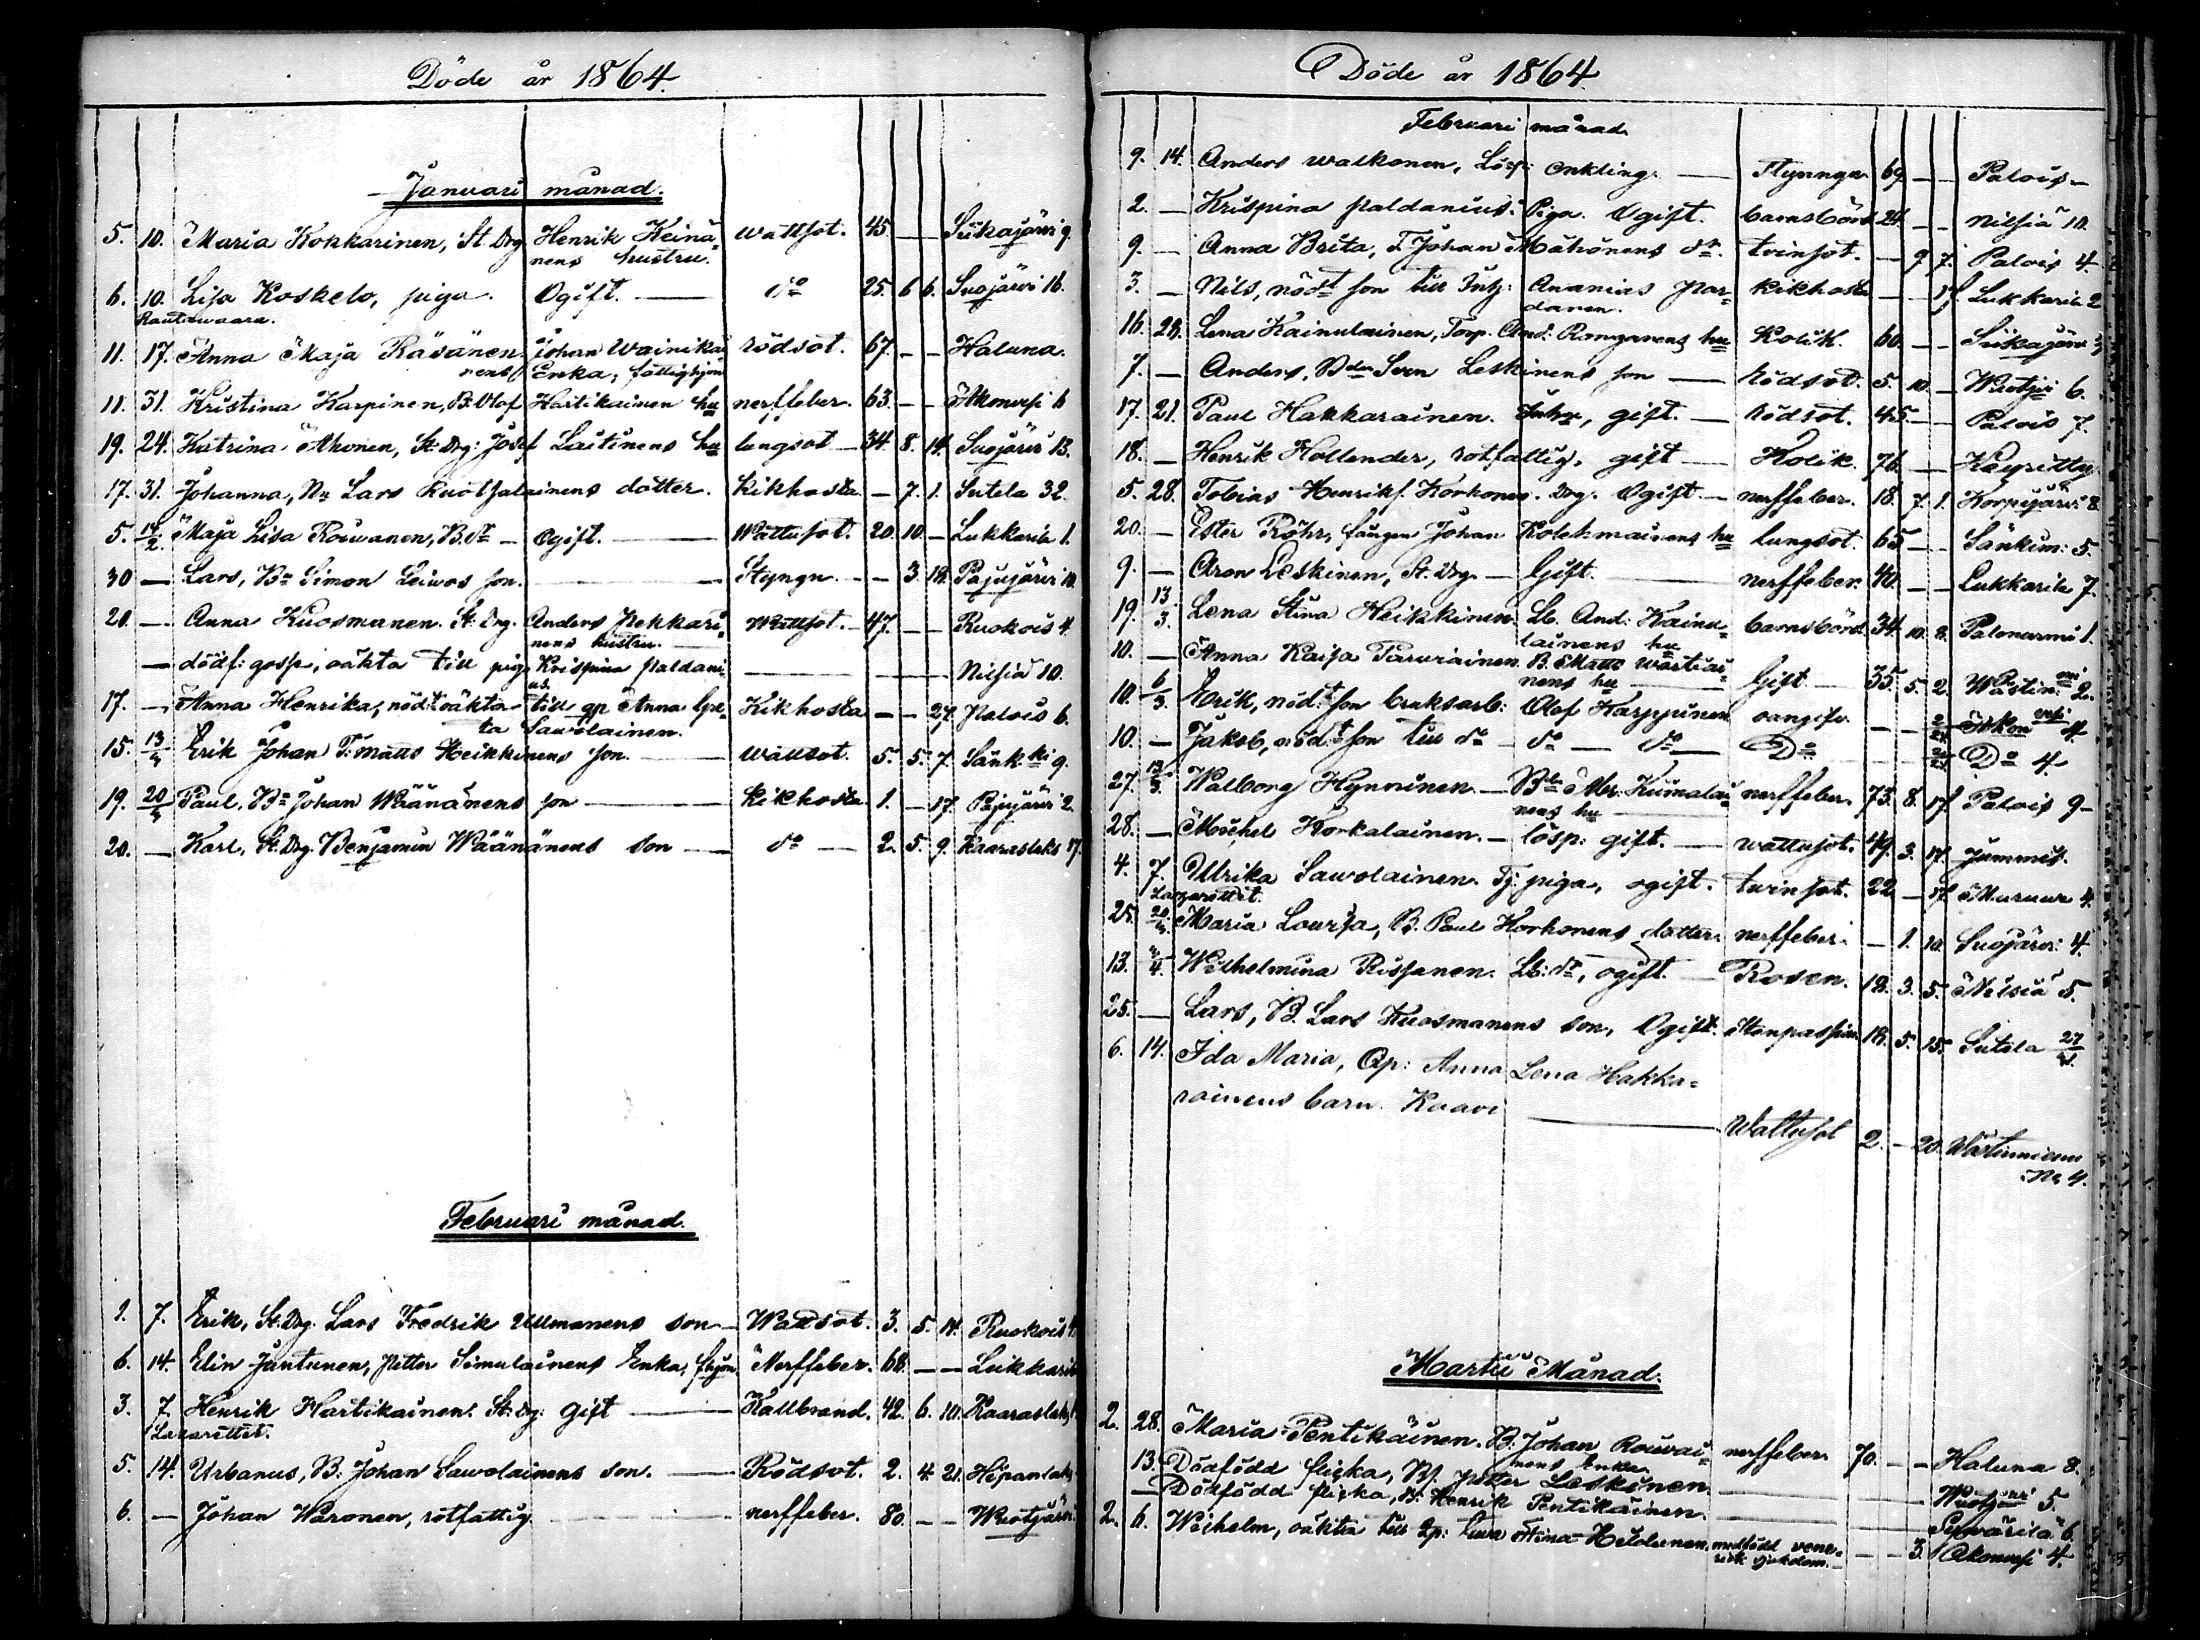 Döde år 1864.
Januari månad.
5. 10. Maria Kokkarinen, St. Drg Henrik Keinä- wattsot. 45. — — Siikajärvi 9.
nens hustru.
6. 10. Lisa Koskelo, piga. Ogift. — do 25. 6 6. Suojärvi 16.
Rautavaara.
11. 17. Anna Maja Räsänen, Johan Wainika- rödsot. 67. — — Haluna.
nens Enka, fattighjon
11. 31. Kristina Karpinen, B. Olof Hartikainen hu nerffeber. 63. — — Akonvesi 6
19. 24. Katrina Ahonen, St. Drg: Josef Laitinens hu lungsot — 34. 8. 14. Suojärvi 13.
17. 31. Johanna, Ns Lars Ruotsalainens dotter. kikhosta — 7. 1. Sutela 32.
5. 14/2. Maja Lisa Rouvanen, B. dr — Ogift. — Wattusot. 20. 10. — Lukkarila 1.
30 — Lars, Bn Simon Leiwos son. — Styngn. — — 3. 14. Pajujärvi 10.
20. — Anna Kuosmanen. St. Drg. Anders Pekkari- Wattsot. — 47. — — Ruokois 4.
nens hustru. —
— dödf: goss, oäkta till pig. Krispina Paldani- — — — Nilsiä 10.
us.
17. — Anna Henrika, nöd:t oäkta till qp Anna Gre- Kikhosta — — 27. Palois 6.
ta Sawolainen.
15. 13/3 Erik Johan T: Matts Heikkinens son. — wattsot. 5. 5. 7. Sänk:ki 9.
19. 20/3 Paul, Bn Johan Wäänänens son — kikhosta 1. — 17. Pajujärvi 2.
20. — Karl, St. Drg. Benjamin Wäänänens son — do — 2. 5. 9. Kaaraslaks 17.
Februari månad.
1. 7. Erik, St. Drg. Lars Fredrik Ullmanens son — Wattsot. 3. 5. 14. Ruokois 4.
6. 14. Elin Jantunen, Petter Simulainens Enka, fhjon Nerffeber. 68. — — Lukkarila
3. 7. Henrik Hartikainen. St: Drg: Gift — Kallbrand. 42. 6. 10. Kaaraslaks
Lazarettet.
5. 14. Urbanus, B. Johan Sawolainens son. — Rödsot. 2. 4. 21. Hipanlaks
6. — Johan Waronen, rotfattig — nerffeber. 80. — — Wuotjärvi
Döde år 1864.
Februari månad
9. 14. Anders Walkonen, Lösp: enkling. — Styngn 69 — — Palois —
2. — Krispina Paldanius. Piga. Ogift. barnsbörd 24. — — Nilsiä 10.
9. — Anna Brita, T. Johan Mähönens dr. tvinsot. — 9 7. Palois 4.
3. — Nils, nödt son till Inh: Ananias Par- kikhosta — — 17 Lukkarila 2
danen.
16. 28. Lena Kainulainen, Torp. And: Romganens hu Kolik. 60. — — Siikajärvi
7. — Anders, Bden Sven Leskinens son — Rödsot. 5. 10. — Wuotjärvi 6.
17. 21. Paul Hakkarainen. Inhr, gift. — rödsot. 45. — — Palois 7.
18. — Henrik Hollender, rotfattig, gift — Kolik. 76. — — Keyritty
5. 28. Tobias Henriks. Korhonen. Drg. Ogift. — nerffeber. 18. 7. 1. Korpijärvi 8.
20. — Ester Röhr, fången Johan Kolehmainens hu lungsot. 65 — — Sänkim: 5.
9. — Aron Leskinen, St. Drg. — Gift. — nerffeber. 40. — — Lukkarila 7.
19. 13/3. Lena Stina Heikkinen. Lb. And: Kainu- barnsbörd. 34. 10. 2. Palonurmi 1.
lainens hu
10. — Anna Kaisa Tarvainen. B. Matts Wartiai- Gift — 35. 5. 2. Wästin:mi 2.
nens hu —
10. 6/3. Erik, nöd:t son bruksarb: Olof Karppinen oangifv. — — Akonvesi 4.
10. — Jakob, nöd:t son till do — do — do — Do — — Do 4.
27. 13/3. Walborg Hynninen — Bde Mr. Kumalai- nerffeber. 73. 8. 17. Palois 9 —
nens hu —
28. — Michel Korkalainen. — lösp: gift. — wattusot. 49. 3. 17. Jummis.
4. 7. Ulrika Sawolainen. Tj: piga, ogift. twinsot. 22 — 17. Muruwe 4.
Lazarettet.
25. Maria Lowisa, B. Paul Korhonens dotter. nerffeber. — 1. 10. Suojärvi 4.
13. Wilhelmina Rissanen. Lb: dr, ogift. — Rosen. 18. 3. 5. Nilsiä 5.
25. — Lars, B. Lars Kuosmanens son, Ogift. Stenpassion 18. 5. 15. Sutela
6. 14. Ida Maria, Qp: Anna Lena Hakka-
rainens barn. Kaavi — Wattusot 2. — 20. Wästinniemi
No 4.
Martii Månad.
2. 28. Maria Pentikäinen. B. Johan Rouvai- nerffeber 70. — — Haluna 8.
nens Enka.
13. Dödfödd flicka, Bf. Petter Leskinen. — — — Wuotjärvi 5.
— Dödfödd flicka, B: Henrik Pentikäinen. — — — Sywärilä 6.
2. 6. Wilhelm, oäkta till Qp: Ewa Stina Heldunen. medfödd vene- — — 3. Akonvesi 4.
risk sjukdom. —